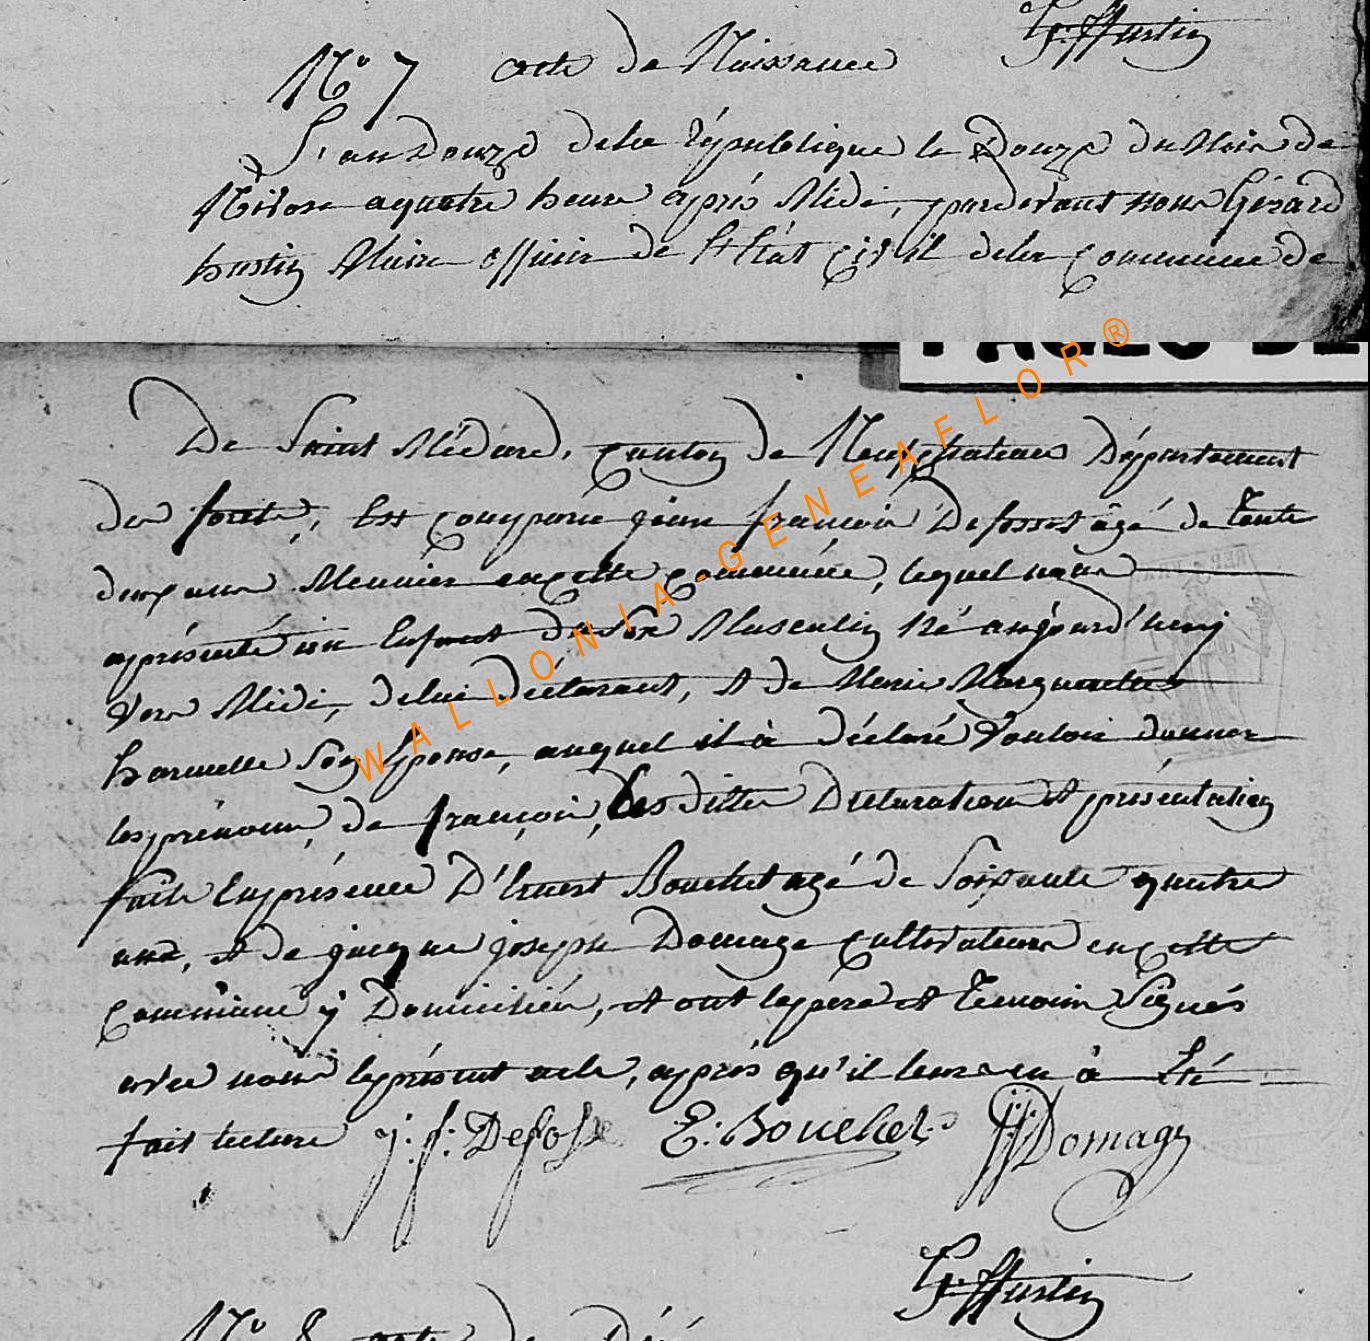 G: Hustin
N° 7 acte de Naissance
L'an Douze dela République le Douze du Mois de
Nivose a quatre heure après Midi, pardevant nous Gérard
hustin Maire officier de L'Etat Civil dela Commune de
PAGES DE
De Saint Médard, canton de Neufchateau Département
des forets, Est comparu jean françois Defosset âgé de Tente
deux ans Meunier en cette commune, lequel nous
a présenté un Enfant du Sex Masculin Né aujourd'huy
vers Midi, delui déclarant, et de Marie Marguerite
Son Epouse, auquel il à déclaré Vouloir donner
les prénoms, de françois, Les dittes Declaration et présentation
faite En présence D'Evert Bouchet agé de Soixante quatre
ans, et de jacque joseph Domage cultivateurs en cette
commune y Domiciliés, et ont le père et Temoins Signés
avec nous le présent acte, après qu'il leurs en à Eté
fait lecture j: f: Defosse E: Bouchet JJ Domage
G: Hustin
N° 8 acte de Dé
WALLONIA-GENEAFLOR®